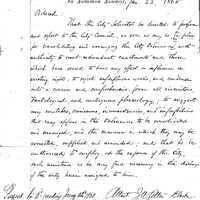 In Common Council, Jan. 22, 1885
Ordered
That the City Solicitor be directed to prepare
and report to the City Council, as soon as may be, a plan
for consolidating and arranging the City Ordinances, with
authority to omit redundant enactments and those
which have ceased to have any effect or influence on
existing rights, to reject superfluous words, and condense
into a concise and comprehensive form all circuitous,
tautological and ambiguous phraseology; to suggest
any mistakes, omissions, inconsistencies and imperfections
that may appear in the Ordinances to be consolidated
and arranged, and the manner in which they may be
corrected, supplied and amended; and that he be
authorized to employ, at the expense of the City,
such assistance as he may find necessary in the discharge
of the duty herein assigned to him.
Attest Clerk